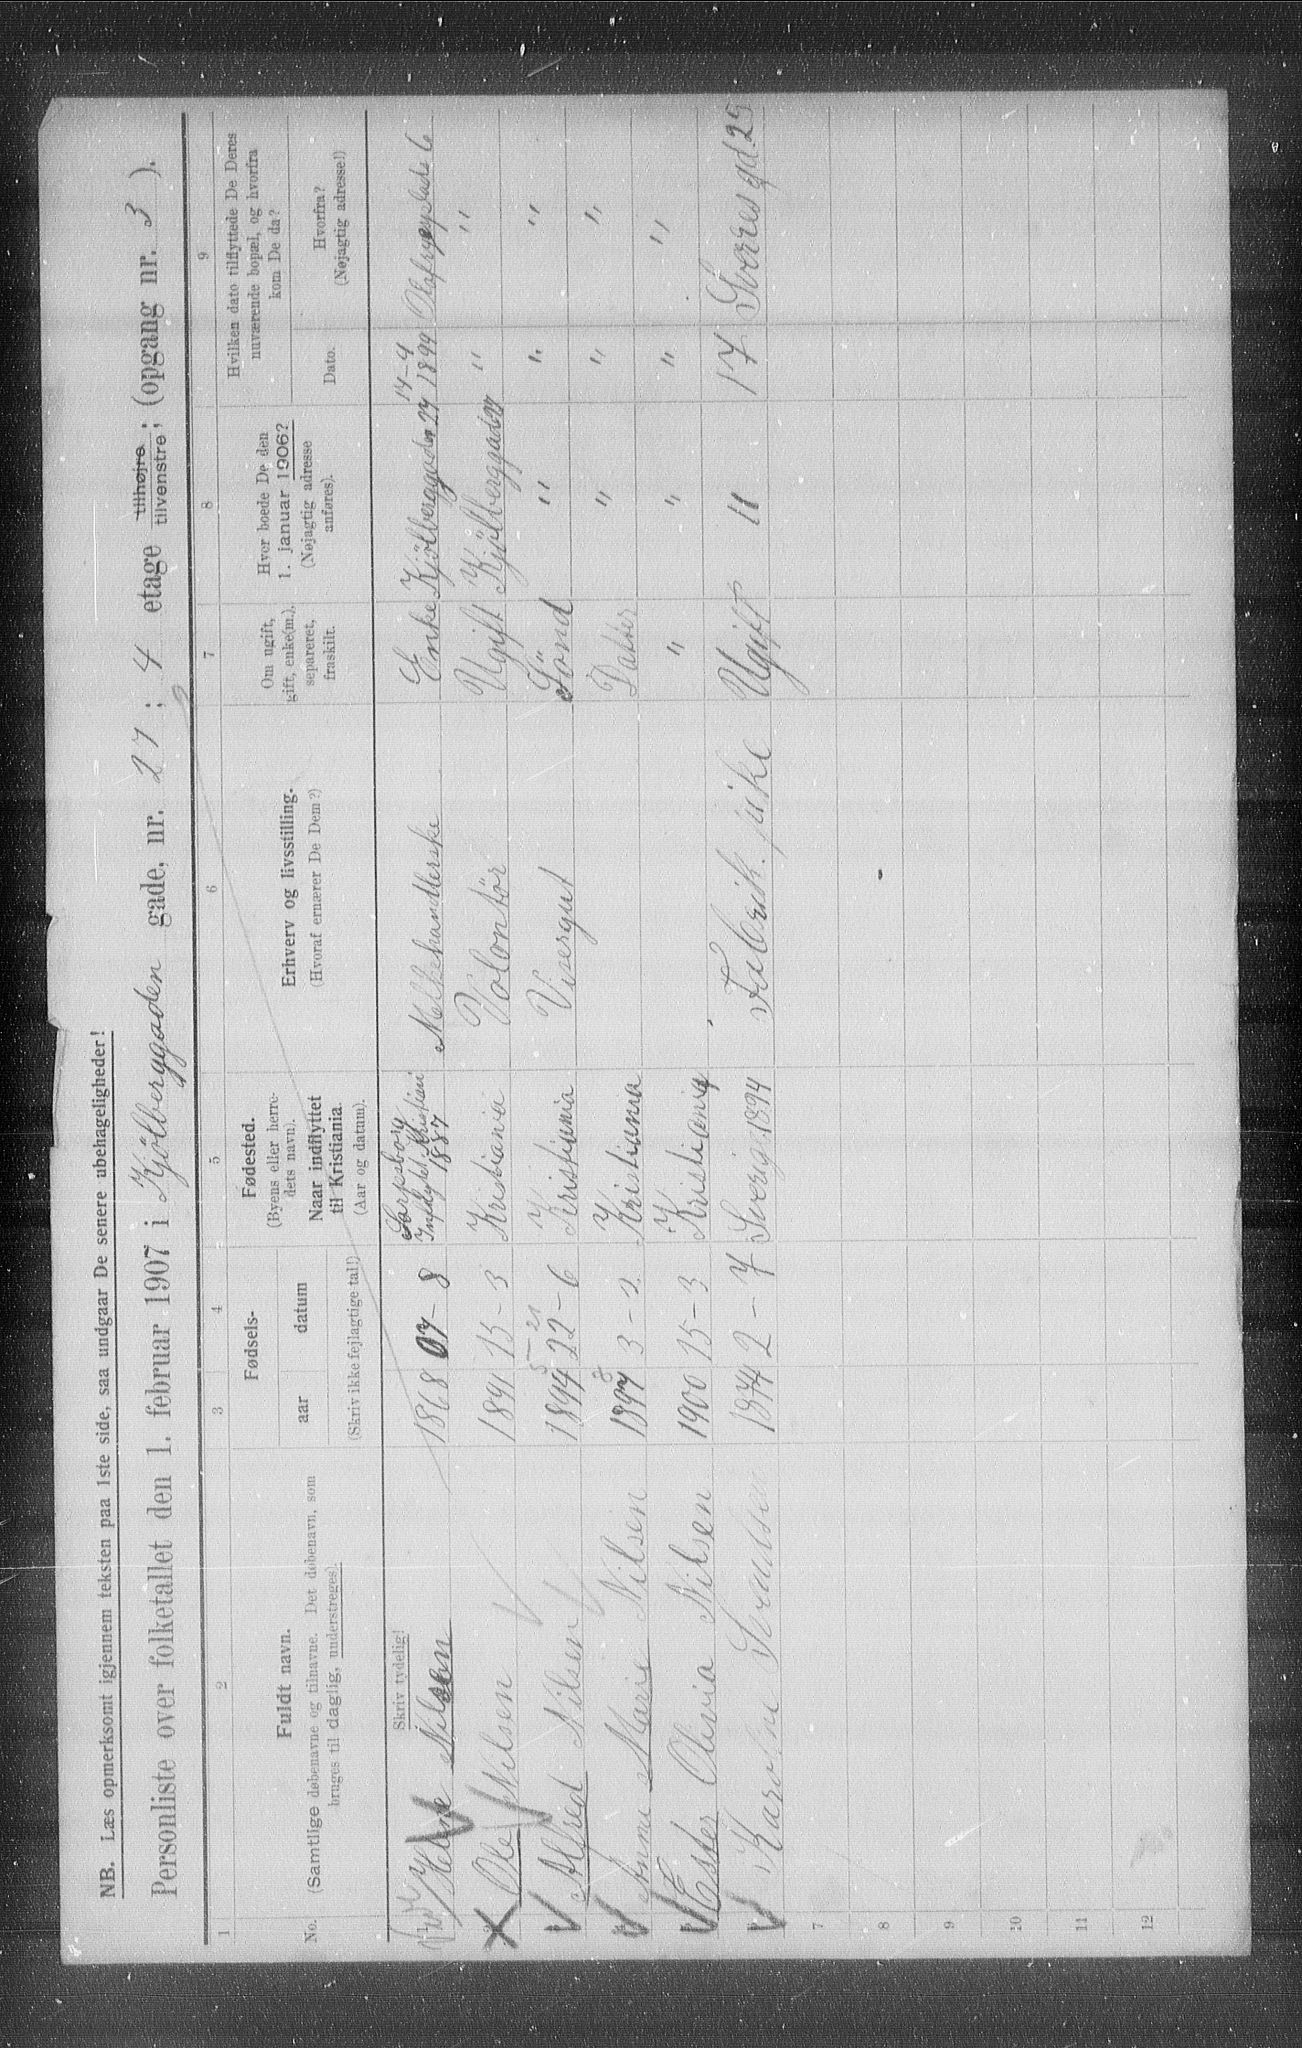 NB. Læs opmerksomt igjennem teksten paa 1ste side, saa undgaar De senere ubehageligheder!
Personliste over folketallet den 1. februar 1907 i Kjölberggaden gade, nr. 27; 4 etage tilhøjre tilvenstre; (opgang nr. 3 ).
1 2 3 4 5 6 7 8 9
No.
Fuldt navn.
(Samtlige døbenavne og tilnavne. Det døbenavn, som
bruges til daglig, understreges).
Skriv tydelig!
Fødsels-
aar datum
(Skriv ikke fejlagtige tal!)
Fødested.
(Byens eller herre-
dets navn).
Naar indflyttet
til Kristiania.
(Aar og datum).
Erhverv og livsstilling.
(Hvoraf ernærer De Dem?)
Om ugift,
gift, enke(m.),
separeret,
fraskilt.
Hvor boede De den
1. januar 1906?
(Nøjagtig adresse
anføres).
Hvilken dato tilflyttede De Deres
nuværende bopæl, og hvorfra
kom De da?
Dato.
Hvorfra?
(Nøjagtig adresse!)
Helene Nilsen 1868 07-8 Sarpsborg Infflytet Kristiani 1887 Melkehandlerske Enke Kjölberggaden 27 14-4 1899
Ole Nilsen 1891 15-3 Kristiania Volontör Ugift Kjölberggaden 27 " "
Alfred Nilsen 1894 5 22-6 21 Kristiania Visergut Sönd " " "
Anne Marie Nilsen 1897 8 3-2 Kristiania Datter " " "
Ester Olivia Nilsen 1900 15-3 Kristiania " " " "
Karoline 1874 2-7 Sverig 1894 Fabrik. pike Ugift 11 17 Sverres gd. 25
7
8
9
10
11
12